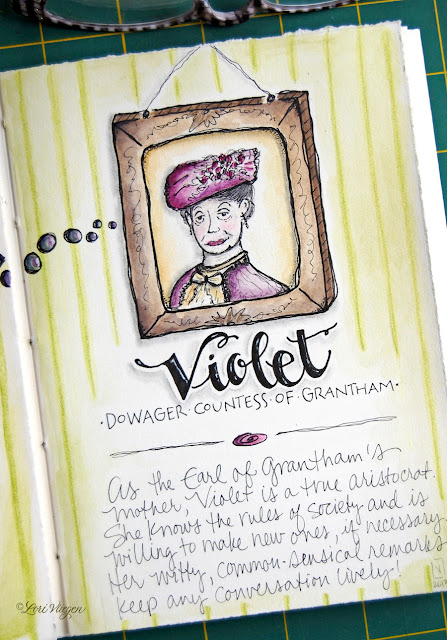 Violet
·DOWAGER·COUNTESS·OF·GRANTHAM·
As the Earl of Grantham's
mother, Violet is a true aristocrat.
She knows the rules of society and is
willing to make new ones, if necessary.
Her witty, common-sensical remarks
keep any conversation lively!
©Lori Vliegen